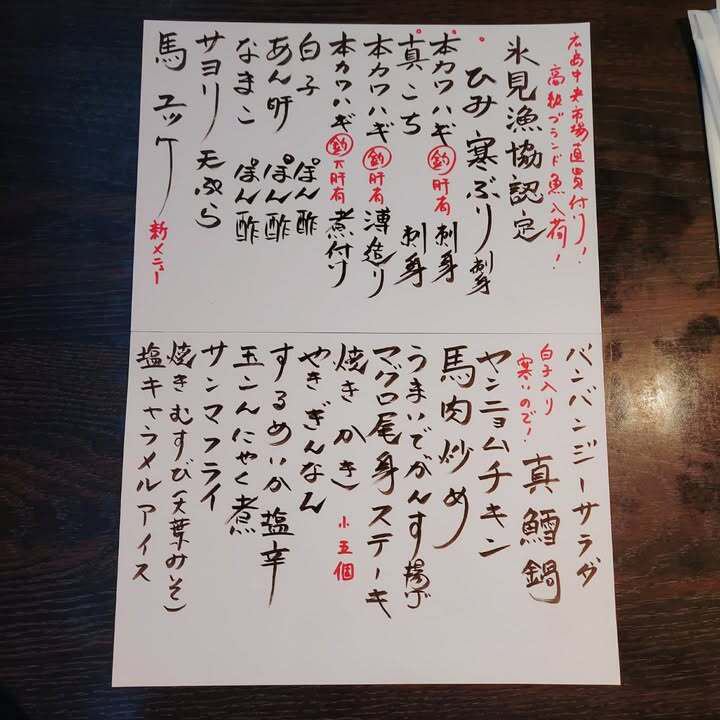 広島中央市場直買付り!
高級ブランド魚入荷!
氷見漁協認定
ひみ寒ぶり 刺身
本カワハギ 釣 肝有 刺身
真こち 刺身
本カワハギ 釣 肝有 薄造り
本カワハギ 釣 大肝有 煮付け
白子 ぽん酢
あん肝 ぽん酢
なまこ ぽん酢
サヨリ 天ぷら
馬ユッケ 新メニュー
バンバンジーサラダ
白子入り
寒いので!
真鱈鍋
ヤンニョムチキン
馬肉炒め
うまいでがんす揚げ
マグロ尾身ステーキ
焼きかき 小五個
やきぎんなん
するめいか塩辛
玉こんにゃく煮
サンマフライ
焼きむすび(大葉みそ)
塩キャラメルアイス